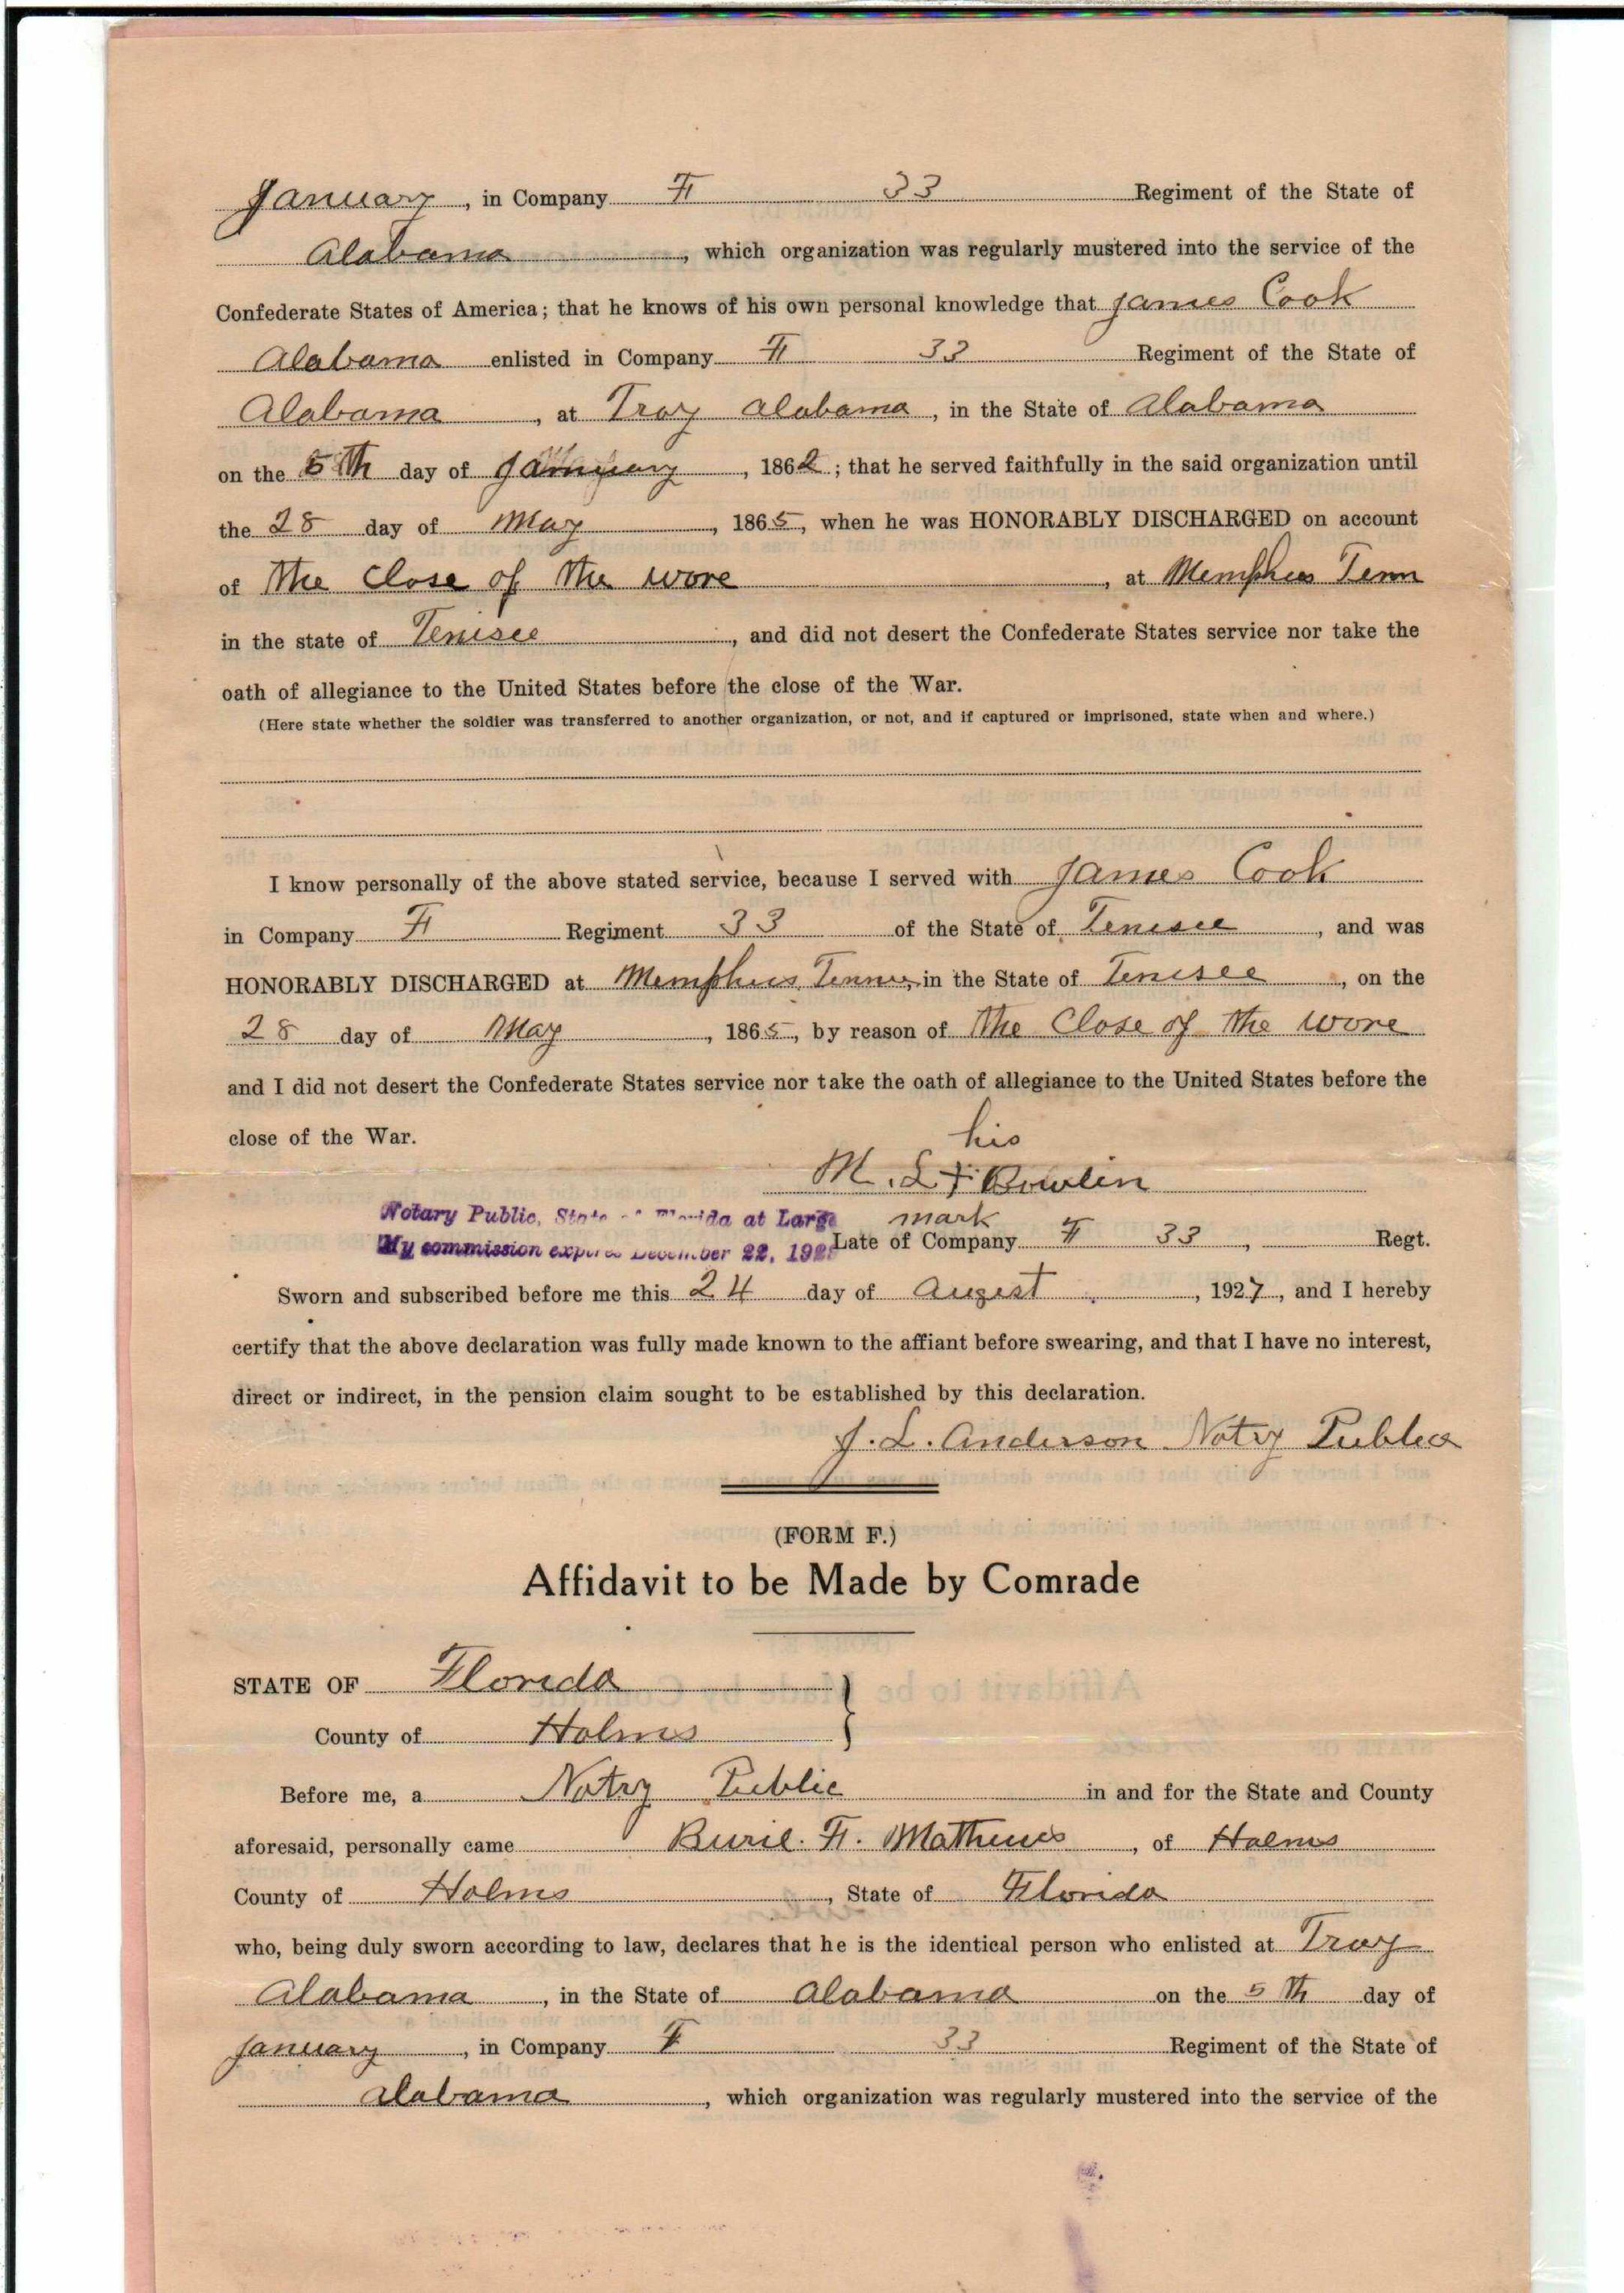 January, in Company F 33 Regiment of the State of
Alabama, which organization was regularly mustered into the service of the
Confederate States of America; that he knows of his own personal knowledge that James Cook
Alabama enlisted in Company F 33 Regiment of the State of
Alabama, at Troy Alabama, in the State of Alabama
on the 5th day of January, 1862; that he served faithfully in the said organization until
the 28 day of May, 1865, when he was HONORABLY DISCHARGED on account
of the Close of the wore, at Memphis Tenn
in the state of Tenisee, and did not desert the Confederate States service nor take the
oath of allegiance to the United States before the close of the War.
(Here state whether the soldier was transferred to another organization, or not, and if captured or imprisoned, state when and where.)
I know personally of the above stated service, because I served with James Cook
in Company F Regiment 33 of the State of Tenisee, and was
HONORABLY DISCHARGED at Memphis, in the State of Tenisee, on the
28 day of May, 1865, by reason of the Close of the wore
and I did not desert the Confederate States service nor take the oath of allegiance to the United States before the
close of the War.
his
M. L + Bowlin
mark
Notary Public, State of Florida at Large
My commission expires December 22, 192
Late of Company F 33, Regt.
Sworn and subscribed before me this 24 day of Augest, 1927, and I hereby
certify that the above declaration was fully made known to the affiant before swearing, and that I have no interest,
direct or indirect, in the pension claim sought to be established by this declaration.
J. L. Anderson Notry Public
(FORM F.)
Affidavit to be Made by Comrade
STATE OF Florida
County of Holms
Before me, a Notry Public in and for the State and County
aforesaid, personally came F. Mathews, of Holms
County of Holms, State of Florida
who, being duly sworn according to law, declares that he is the identical person who enlisted at Troy
Alabama, in the State of Alabama on the 5th day of
January, in Company F 33 Regiment of the State of
Alabama, which organization was regularly mustered into the service of the